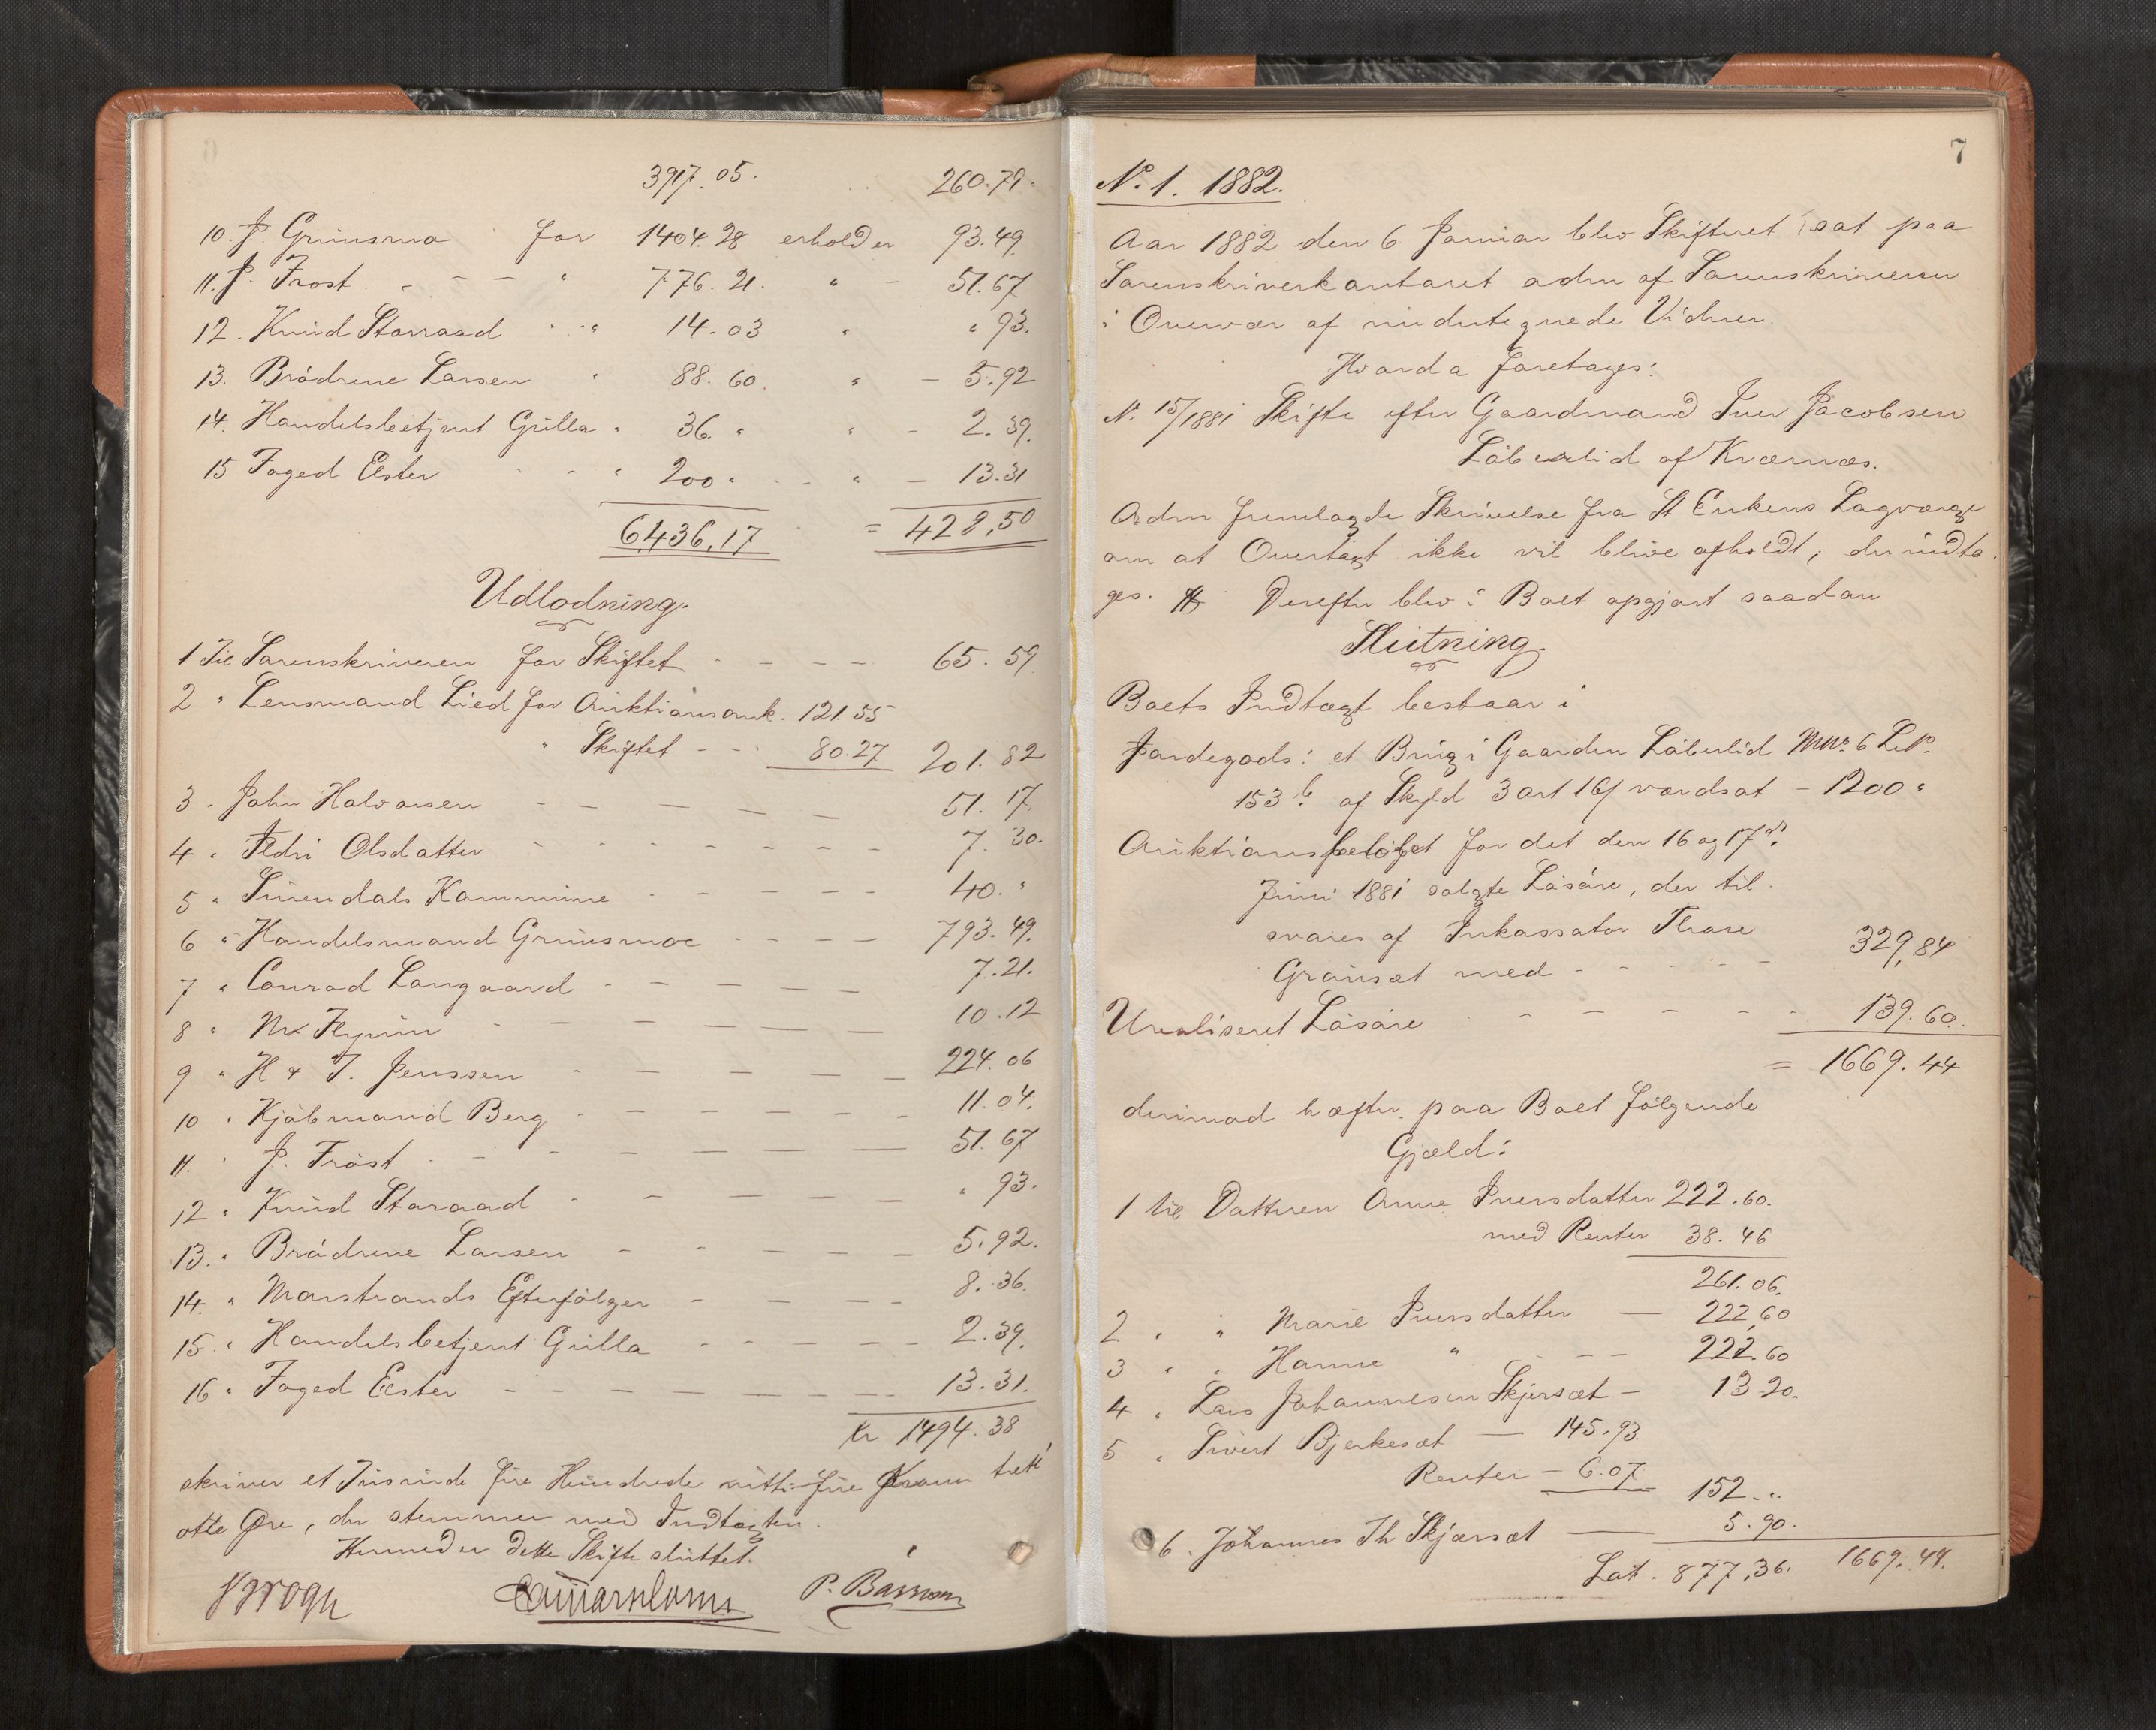 3917.05. 260.79.
10. J. Gruusmo for 1404.28 erholder 93.49.
11. J. Frost. - - " 776.21. " - 51.67
12. Knud Storraad " 14.03 " " 93.
13. Brödrene Larsen " 88.60. " - 5.92
14. Handelsbetjent Grilla " 36. " " - 2.39.
15 Foged Elster - - " 200 " - - " - 13.31
6436,17 = 428,50
Udlodning.
1 Til Sorenskriveren for Skiftet - - - - 65.59
2 " Lensmand Lied for Auktionsomk. 121.55
" Skiftet - - - 80.27 201.82
3 " John Halvorsen - - - - - 51.17.
4 " Olsdatter - - - - - - - 7.30.
5 " Surendals Kommune - - - - - 40. "
6 " Handelsmand Gruusmoe - - - - 793.49.
7 " Conrad Langaard - - - - - 7.21.
8 " - - - - - - 10.12
9 " H & T. Jenssen - - - - - 224.06
10 " Kjöbmand Berg - - - - - - 11.04.
11. " J. Frost - - - - - - - 51.67
12 " Knud Storaad - - - - - " 93.
13. " Brödrene Larsen - - - - - 5.92.
14. " Marstrands Efterfölger - - - - 8.36.
15. " Handelsbetjent Grilla - - - - - 2.39.
16 " Foged Elster - - - - - - - - 13.31.
Kr 1494.38
skriver et Tusinde fire Hundrede nitti fire Kroner tretti
otte Øre, der stemmer med Indtægten.
Hermed er dette Skifte sluttet.
Krogh
7
No. 1. 1882.
Aar 1882 den 6 Januar blev Skifteret sat paa
Sorenskriverkontoret adm af Sorenskriveren
i Overvær af undertegnede Vidner.
Hvorda foretoges:
No. 15/1881 Skifte efter Gaardmand Iver Jacobsen
Löberlid af Kvernæs.
Adm fremlagde Skrivelse fra St Enkens Lagværge
om at Overtaxt ikke vil blive afholdt, der indta-
ges. Derefter blev Boet opgjort saadan
Slutning.
Boets Indtægt bestaar i
Jordegods: et Brug i Gaarden Löberlid MNo. 6 LNo.
153 b. af Skyld 3 ort 16 / værdsat - 1200 "
Auktionsbelöbet for det den 16 og 17de
Juni 1881 solgte Lösöre, der til-
svares af Inkassator Thore
Gröuset med - - - - - 329,84
Urealiseret Lösöre - - - - - 139.60.
= 1669.44
derimod hæfter paa Boet fölgende
Gjæld:
1 til Datteren Anne Iversdatter 222.60.
med Renter 38.46
261.06.
2 " " Marie Iversdatter - 222,60
3 " " Hanne " - - 222.60
4 " Lars Johannesen Skjersæt - 13.20.
5 " Sivert Bjerkesæt - 145.93.
Renter - 6.07. 152. "
6. Johannes Th Skjærsæt - 5.90.
Lat. 877,36. 1669.44.